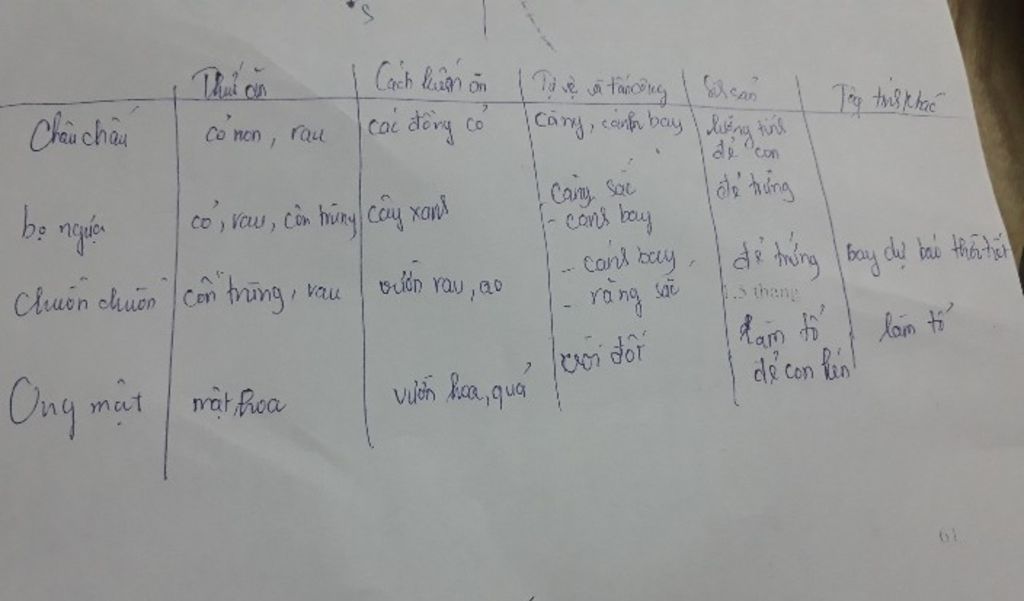 S
Thức ăn Cách kiếm ăn Tự vệ và tấn công Sinh sản Tập tính khác
Châu chấu cỏ non, rau các đồng cỏ càng, cánh bay lưỡng tính
đẻ con
bọ ngựa cỏ, rau, côn trùng cây xanh càng sắc đẻ trứng
- cánh bay
chuồn chuồn côn trùng, rau vườn rau, ao - cánh bay đẻ trứng bay dự báo thời tiết
- răng sắc 1,5 tháng
Ong mật mật, hoa vườn hoa, quả vòi đốt làm tổ làm tổ
đẻ con kén
61